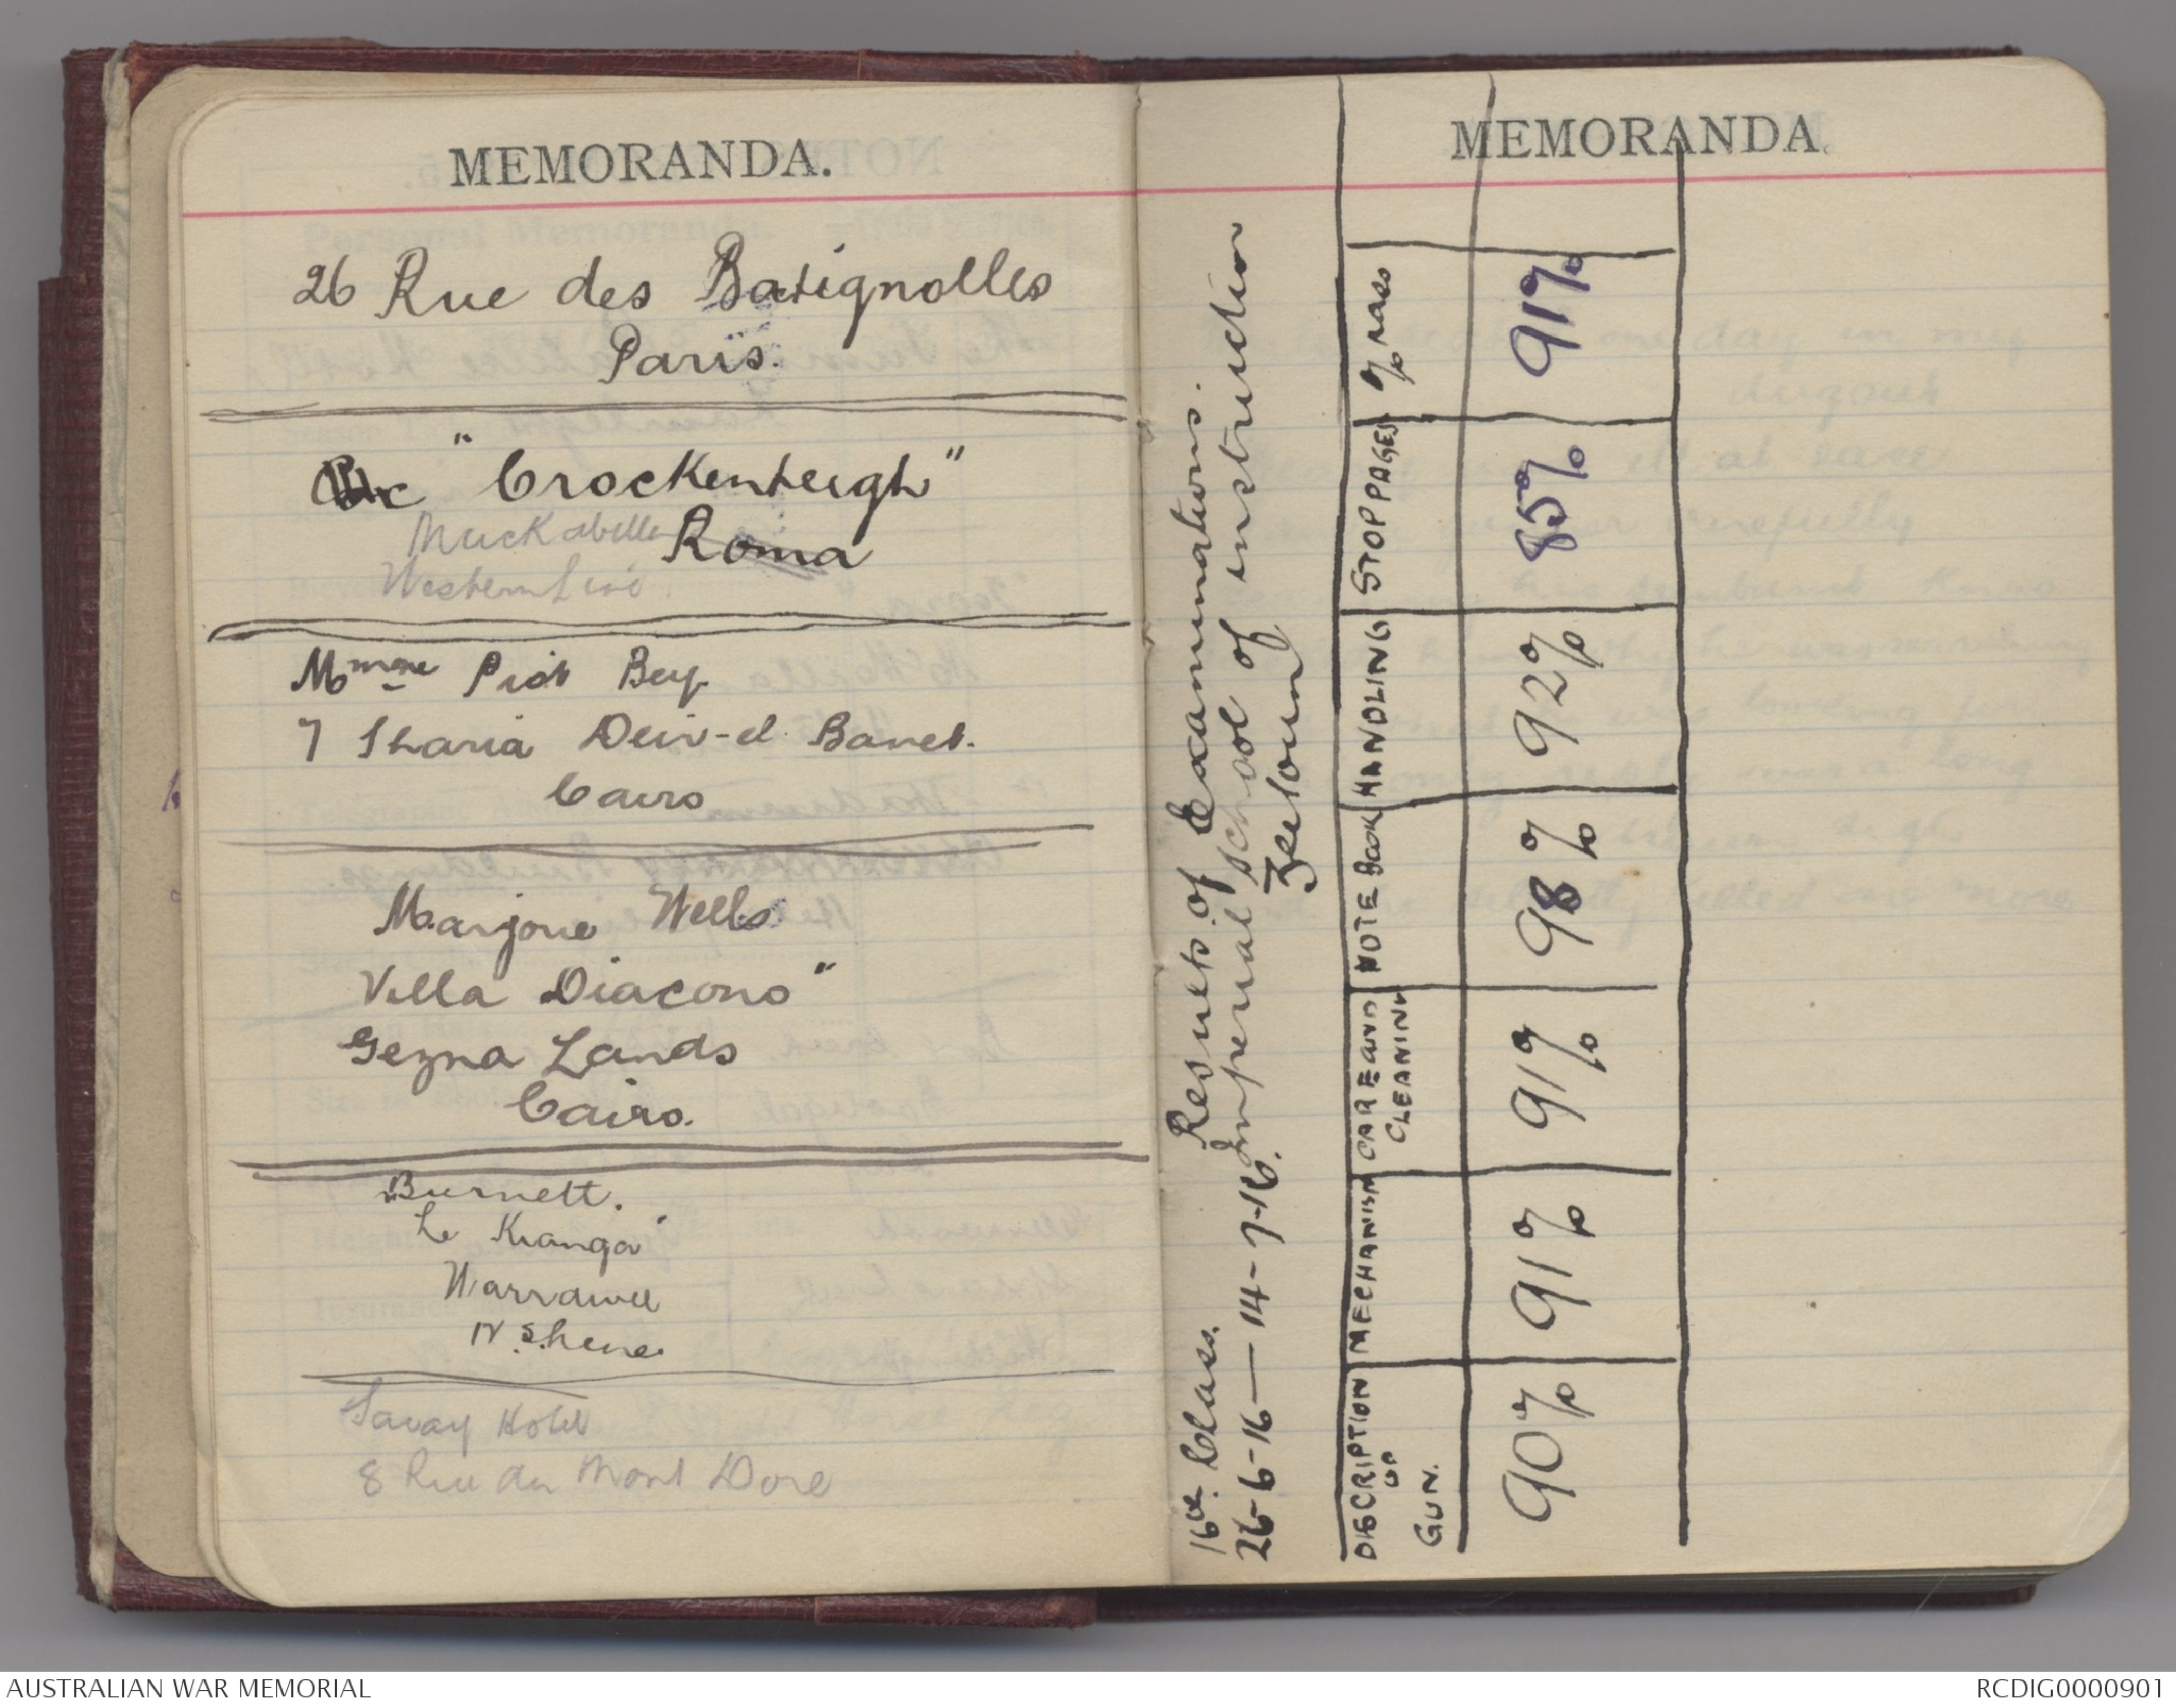 MEMORANDA.
26 Rue des Batignolles
Paris.
"Crockenheigh"
Muckadilla Roma
Western Line
Mmme Piot Bey
7 Sharia Deir-el Banet.
Cairo
Marjorie Wells
Villa Diacono"
Gezira Lands
Cairo.
Burnett.
Warrawee
N. Shore
Savoy Hotel
8 Rue du Mont Dore
MEMORANDA.
Results of Examinations.
16th Class. Imperial School of instruction
26-6-16 — 14-7-16. Zeitoun
DISCRIPTION OF GUN.
MECHANISM
CARE AND CLEANING
NOTE BOOK
HANDLING
STOPPAGES
% pass
90%
91%
91%
98%
92%
85%
91%
AUSTRALIAN WAR MEMORIAL
RCDIG0000901